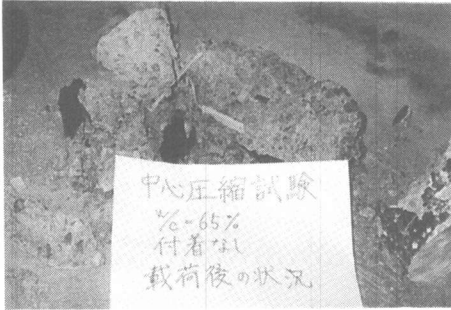 中心圧縮試験
W/C=65%
付着なし
載荷後の状況